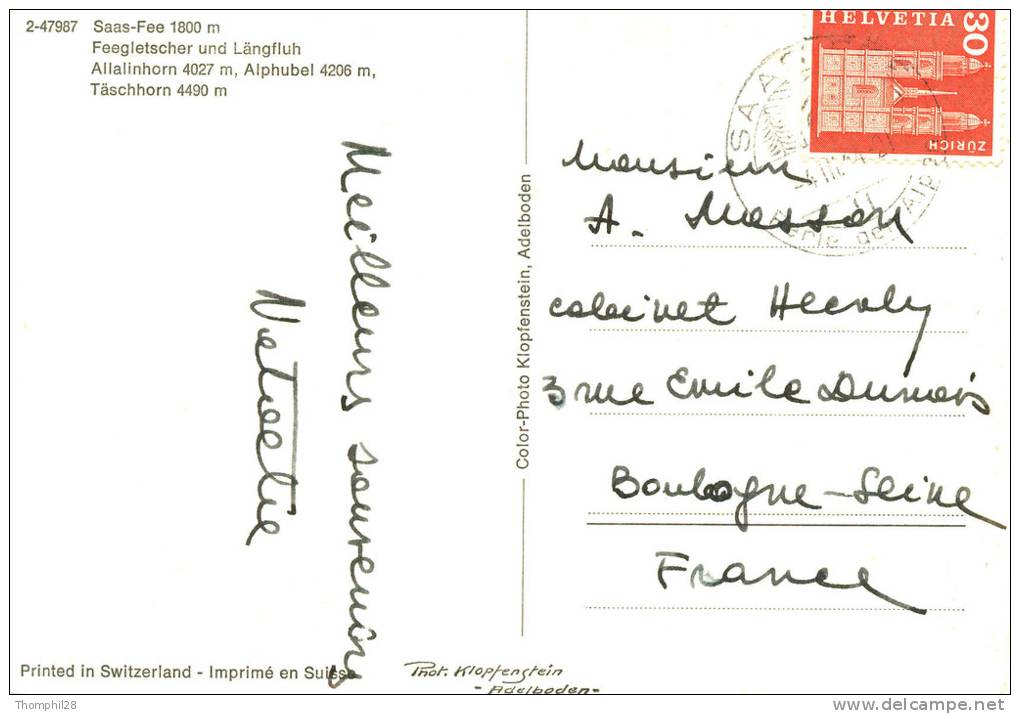 2-47987 Saas-Fee 1800 m
Feegletscher und Längfluh
Allalinhorn 4027 m, Alphubel 4206 m,
Täschhorn 4490 m
Meilleurs souvenirs
Color-Photo Klopfenstein, Adelboden
HELVETIA 30
ZÜRICH
SAAS
Perle der Alpen
Monsieur
A. Masson
cabinet
3 rue Emile Dunois
Boulogne-Seine
France
Printed in Switzerland - Imprimé en Suisse
Phot. Klopfenstein
- Adelboden -
Thomphil28
delcampe.net